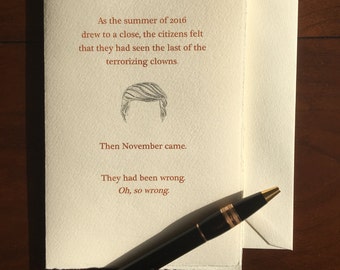 As the summer of 2016
drew to a close, the citizens felt
that they had seen the last of the
terrorizing clowns
Then November came.
They had been wrong.
Oh, so wrong.